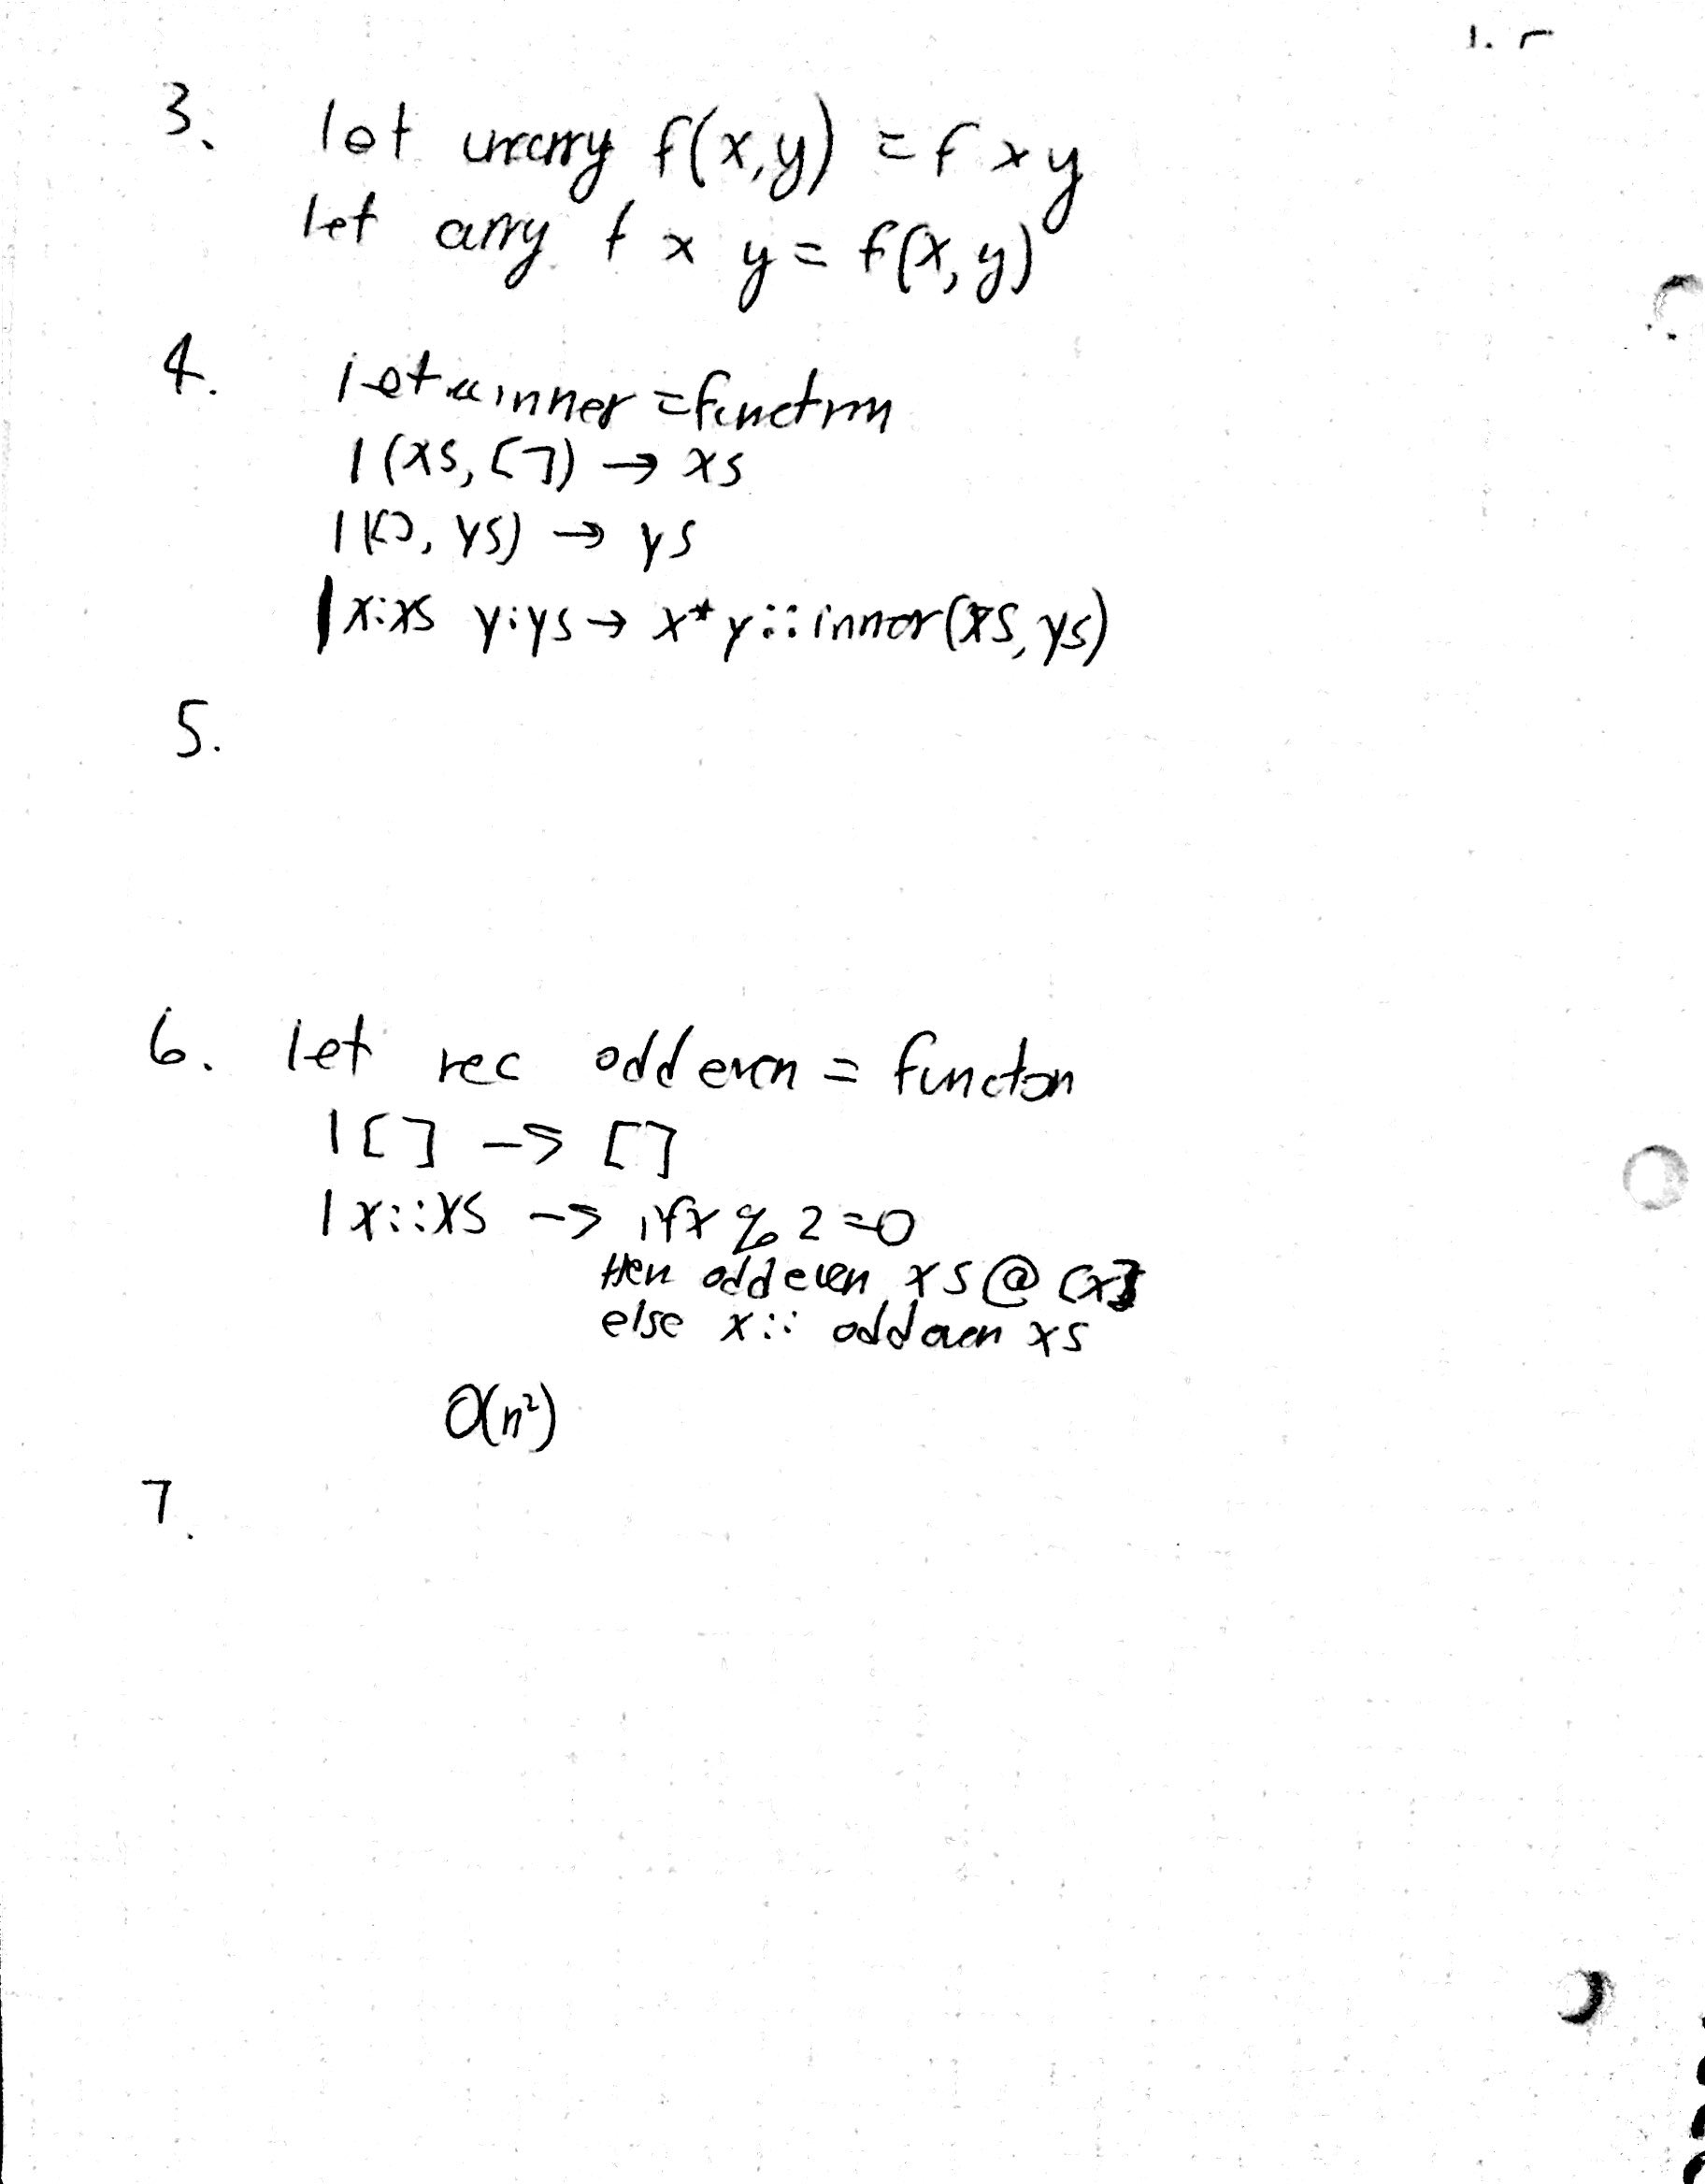 3. let uncurry f(x,y) = f x y
let curry f x y = f(x,y)
4. let inner = function
| (xs, []) → xs
| ([], ys) → ys
| x:xs y:ys → x*y::inner(xs, ys)
5.
6. let rec oddeven = functon
| [] -> []
| x::xs -> if x % 2 = 0
then oddeven xs @ [x]
else x :: oddeven xs
O(n²)
7.